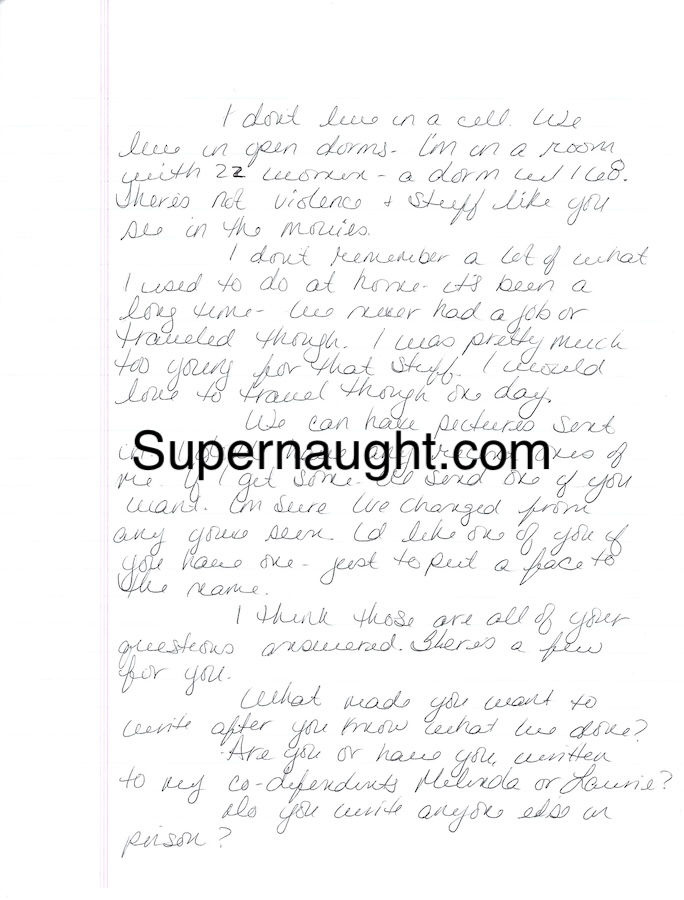 I don't live in a cell. We
live in open dorms - I'm in a room
with 22 women - a dorm w/ 168.
There's not violence + stuff like you
see in the movies.
I dont remember a lot of what
I used to do at home - it's been a
long time - I've never had a job or
traveled though. I was pretty much
too young for that stuff. I would
love to travel though one day.
We can have pictures sent
in any recent ones of
Supernaught.com
me. If I get some I'll send one if you
want. I'm sure I've changed from
any you've seen. I'd like one of you if
you have one - just to put a face to
the name.
I think those are all of your
questions answered. Theres a few
for you.
What made you want to
write after you know what I've done?
Are you or have you written
to my co-defendents Melinda or Laurie?
Do you write anyone else in
prison?